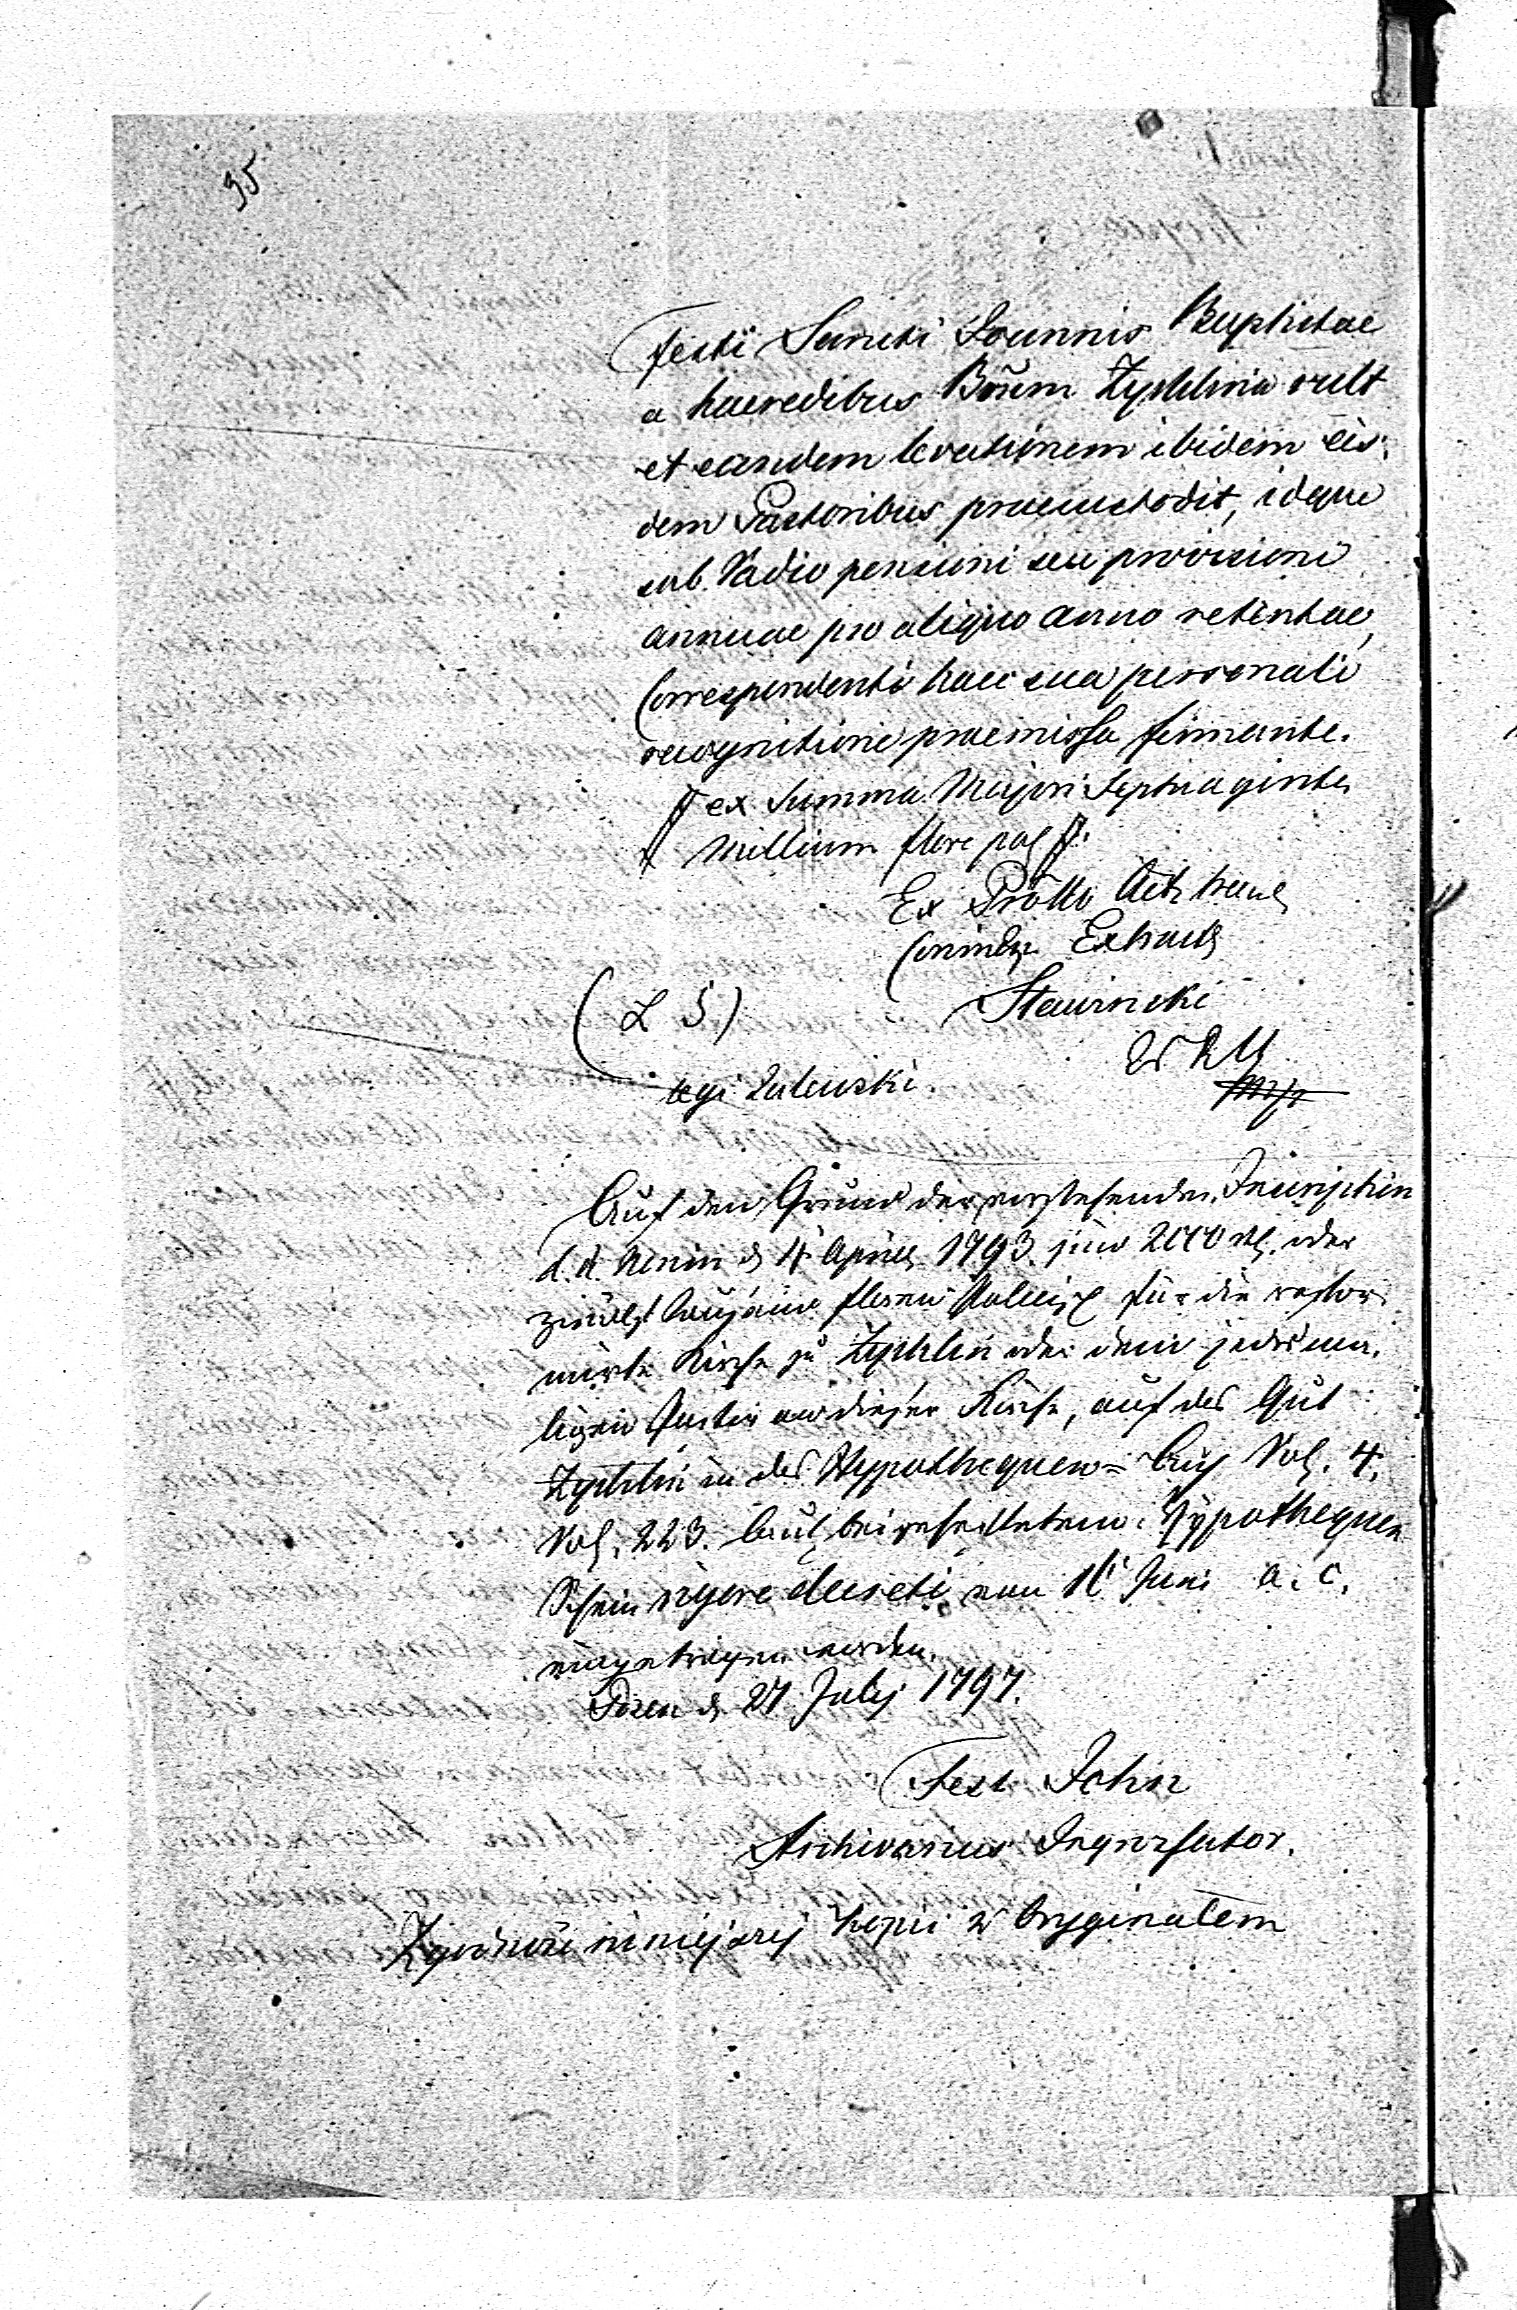 35
festi Sancti Joannis Baptistae
a haeredibus Bonum Zychlina vult
et eandem levationem ibidem eis-
dem Pastoribus praecustodit, idque
sub Vadio pensioni seu provisioni
annuae pro aliquo anno retentae,
Correspondenti hacce sua personali
recognitione praemissa firmante.
ex Summa Majori Septuaginta
Millium flore pol
Ex Protlo Actt
Extractt
(L S)
Stawinski
legi Zalewski.
mp
Auf den Grund der vorstehenden Inscription
d. d. Konin d 4 April 1793. sind oder
für die refor-
mirte Kirche zu Zychlin oder dem jedesma-
ligen Pastor an dieser Kirche, auf das Gut
Zychlin in das Hypothequen-Buch Vol. 4.
Fol. 223. laut Hypothequen
Schein vigore decreti vom Juni a. c.
eingetragen worden.
Posen d 27 July 1797.
Fest John
Archivarius Ingrossator.
Zgodność niniejszej kopii z Oryginałem